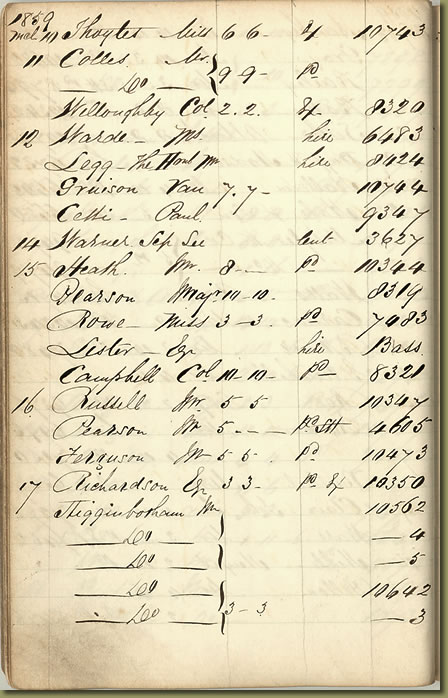 1859
Mar 10 Thoytes Miss 6 6 - & 10743
11 Colles Mr. 9 9 - pd
Do
Willoughby Col 2. 2. & 8320
12 Warde - Ms hire 6483
Legg - The Honl Mr hire 8424
Gruison Van 7. 7 - 10744
Cetti - Paul. 9347
14 Warner Sep Lee lent 3627
15 Heath Mr. 8 - - pd 10344
Pearson Major 10 - 10. 8319
Rowe - Miss 3 - 3. pd 7483
Lester - Eqr hire Bass.
Campbell Col. 10 - 10 - pd 8321
16 Russell Mr. 5 5 10347
Pearson Mr 5 - - - pd 4605
Ferguson Mr 5 5 - pd 10473
17 Richardson Eqr 3 3 - pd & 10350
Higginbotham Mr 10562
Do 4
Do 5
Do 10642
Do 3 - 3 3